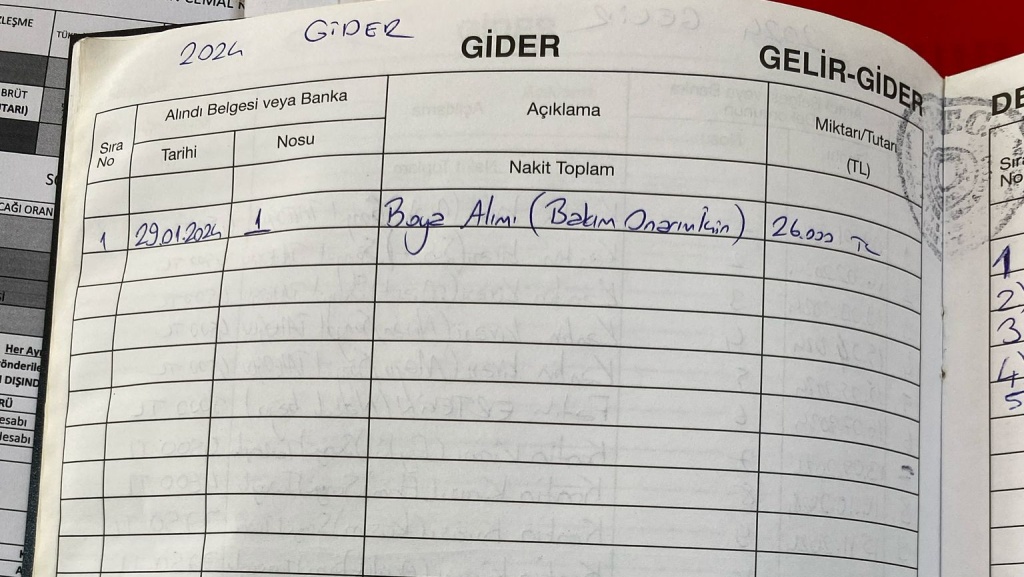 2024 GİDER
GİDER
GELİR-GİDER
ZLEŞME
BRÜT
TARI)
CAĞI ORAN
Her Ay
önderile
DIŞIND
RÜ
esabı
esabı
Sıra No
Alındı Belgesi veya Banka
Tarihi
Nosu
Açıklama
Nakit Toplam
Miktarı/Tutarı
(TL)
1 29.01.2024 1 Boya Alımı (Bakım Onarım İçin) 26.000 TL
T.C.
DE
Sıra
No
1
2)
3
4)
5